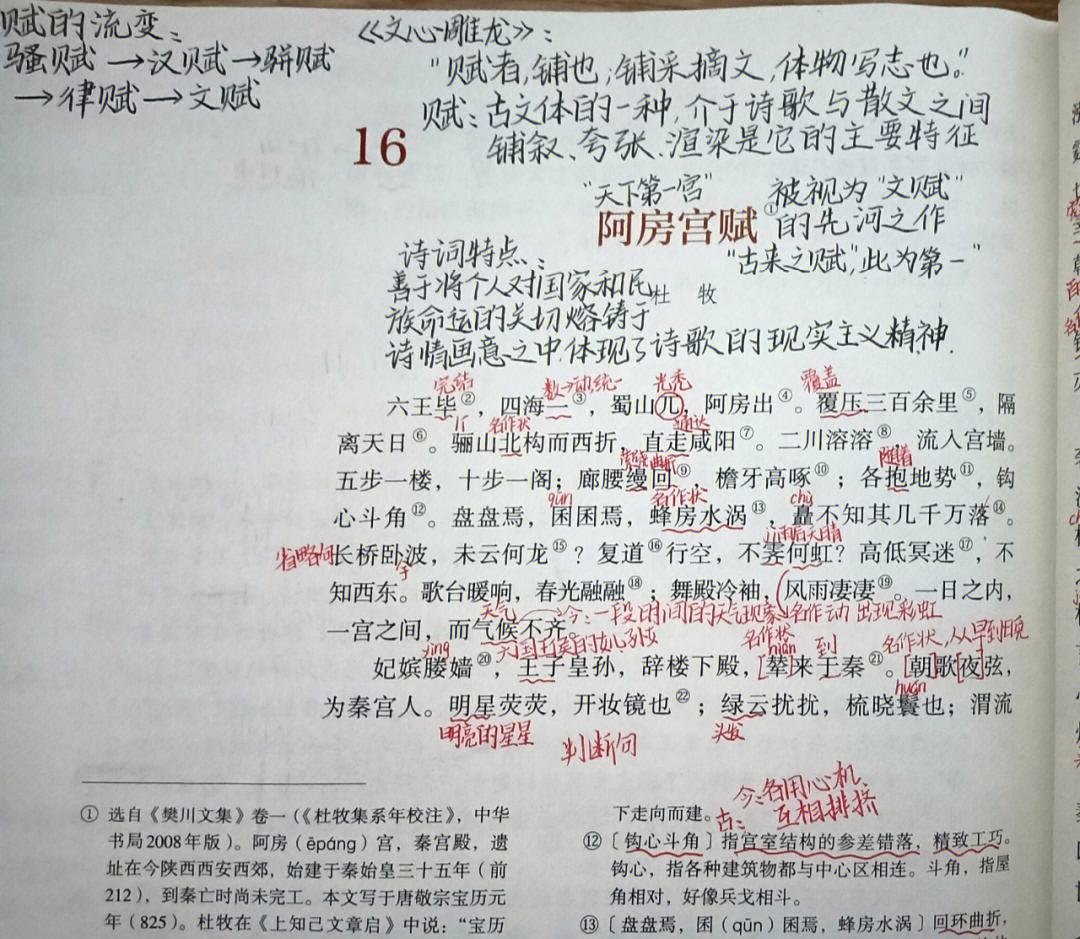 赋的流变：
骚赋→汉赋→骈赋
→律赋→文赋
《文心雕龙》：
"赋者,铺也;铺采摛文,体物写志也。"
赋：古文体的一种,介于诗歌与散文之间
铺叙、夸张、渲染是它的主要特征
16
"天下第一宫"
被视为"文赋"
阿房宫赋①
的先河之作
"古来之赋",此为第一"
诗词特点：
善于将个人对国家和民
杜 牧
族命运的关切熔铸于
诗情画意之中,体现了诗歌的现实主义精神.
完结
数→动,统一
光秃
覆盖
六王毕②，四海一③，蜀山兀，阿房出④。覆压三百余里⑤，隔
名作状
通达
离天日⑥。骊山北构而西折，直走咸阳⑦。二川溶溶⑧，流入宫墙。
萦绕曲折
随着
五步一楼，十步一阁；廊腰缦回⑨，檐牙高啄⑩；各抱地势⑪，钩
qūn
名作状
chù
心斗角⑫。盘盘焉，囷囷焉，蜂房水涡⑬，矗不知其几千万落⑭。
雨后天晴
省略句
长桥卧波，未云何龙⑮？复道⑯行空，不霁何虹？高低冥迷⑰，不
于
知西东。歌台暖响，春光融融⑱；舞殿冷袖，风雨凄凄⑲。一日之内，
天气
今:一段时间的天气现象
名作动 出现彩虹
一宫之间，而气候不齐。
yìng
六国王侯的女儿,孙女
名作状
niǎn
到
名作状,从早到晚
妃嫔媵嫱⑳，王子皇孙，辞楼下殿，辇来于秦㉑。朝歌夜弦，
huán
为秦宫人。明星荧荧，开妆镜也㉒；绿云扰扰，梳晓鬟也；渭流
明亮的星星
判断句
头发
今:各用心机、
互相排挤
古:
① 选自《樊川文集》卷一（《杜牧集系年校注》，中华
书局2008年版）。阿房（ēpáng）宫，秦宫殿，遗
址在今陕西西安西郊，始建于秦始皇三十五年（前
212），到秦亡时尚未完工。本文写于唐敬宗宝历元
年（825）。杜牧在《上知己文章启》中说：“宝历
下走向而建。
⑫〔钩心斗角〕指宫室结构的参差错落，精致工巧。
钩心，指各种建筑物都与中心区相连。斗角，指屋
角相对，好像兵戈相斗。
⑬〔盘盘焉，囷（qūn）囷焉，蜂房水涡〕回环曲折，